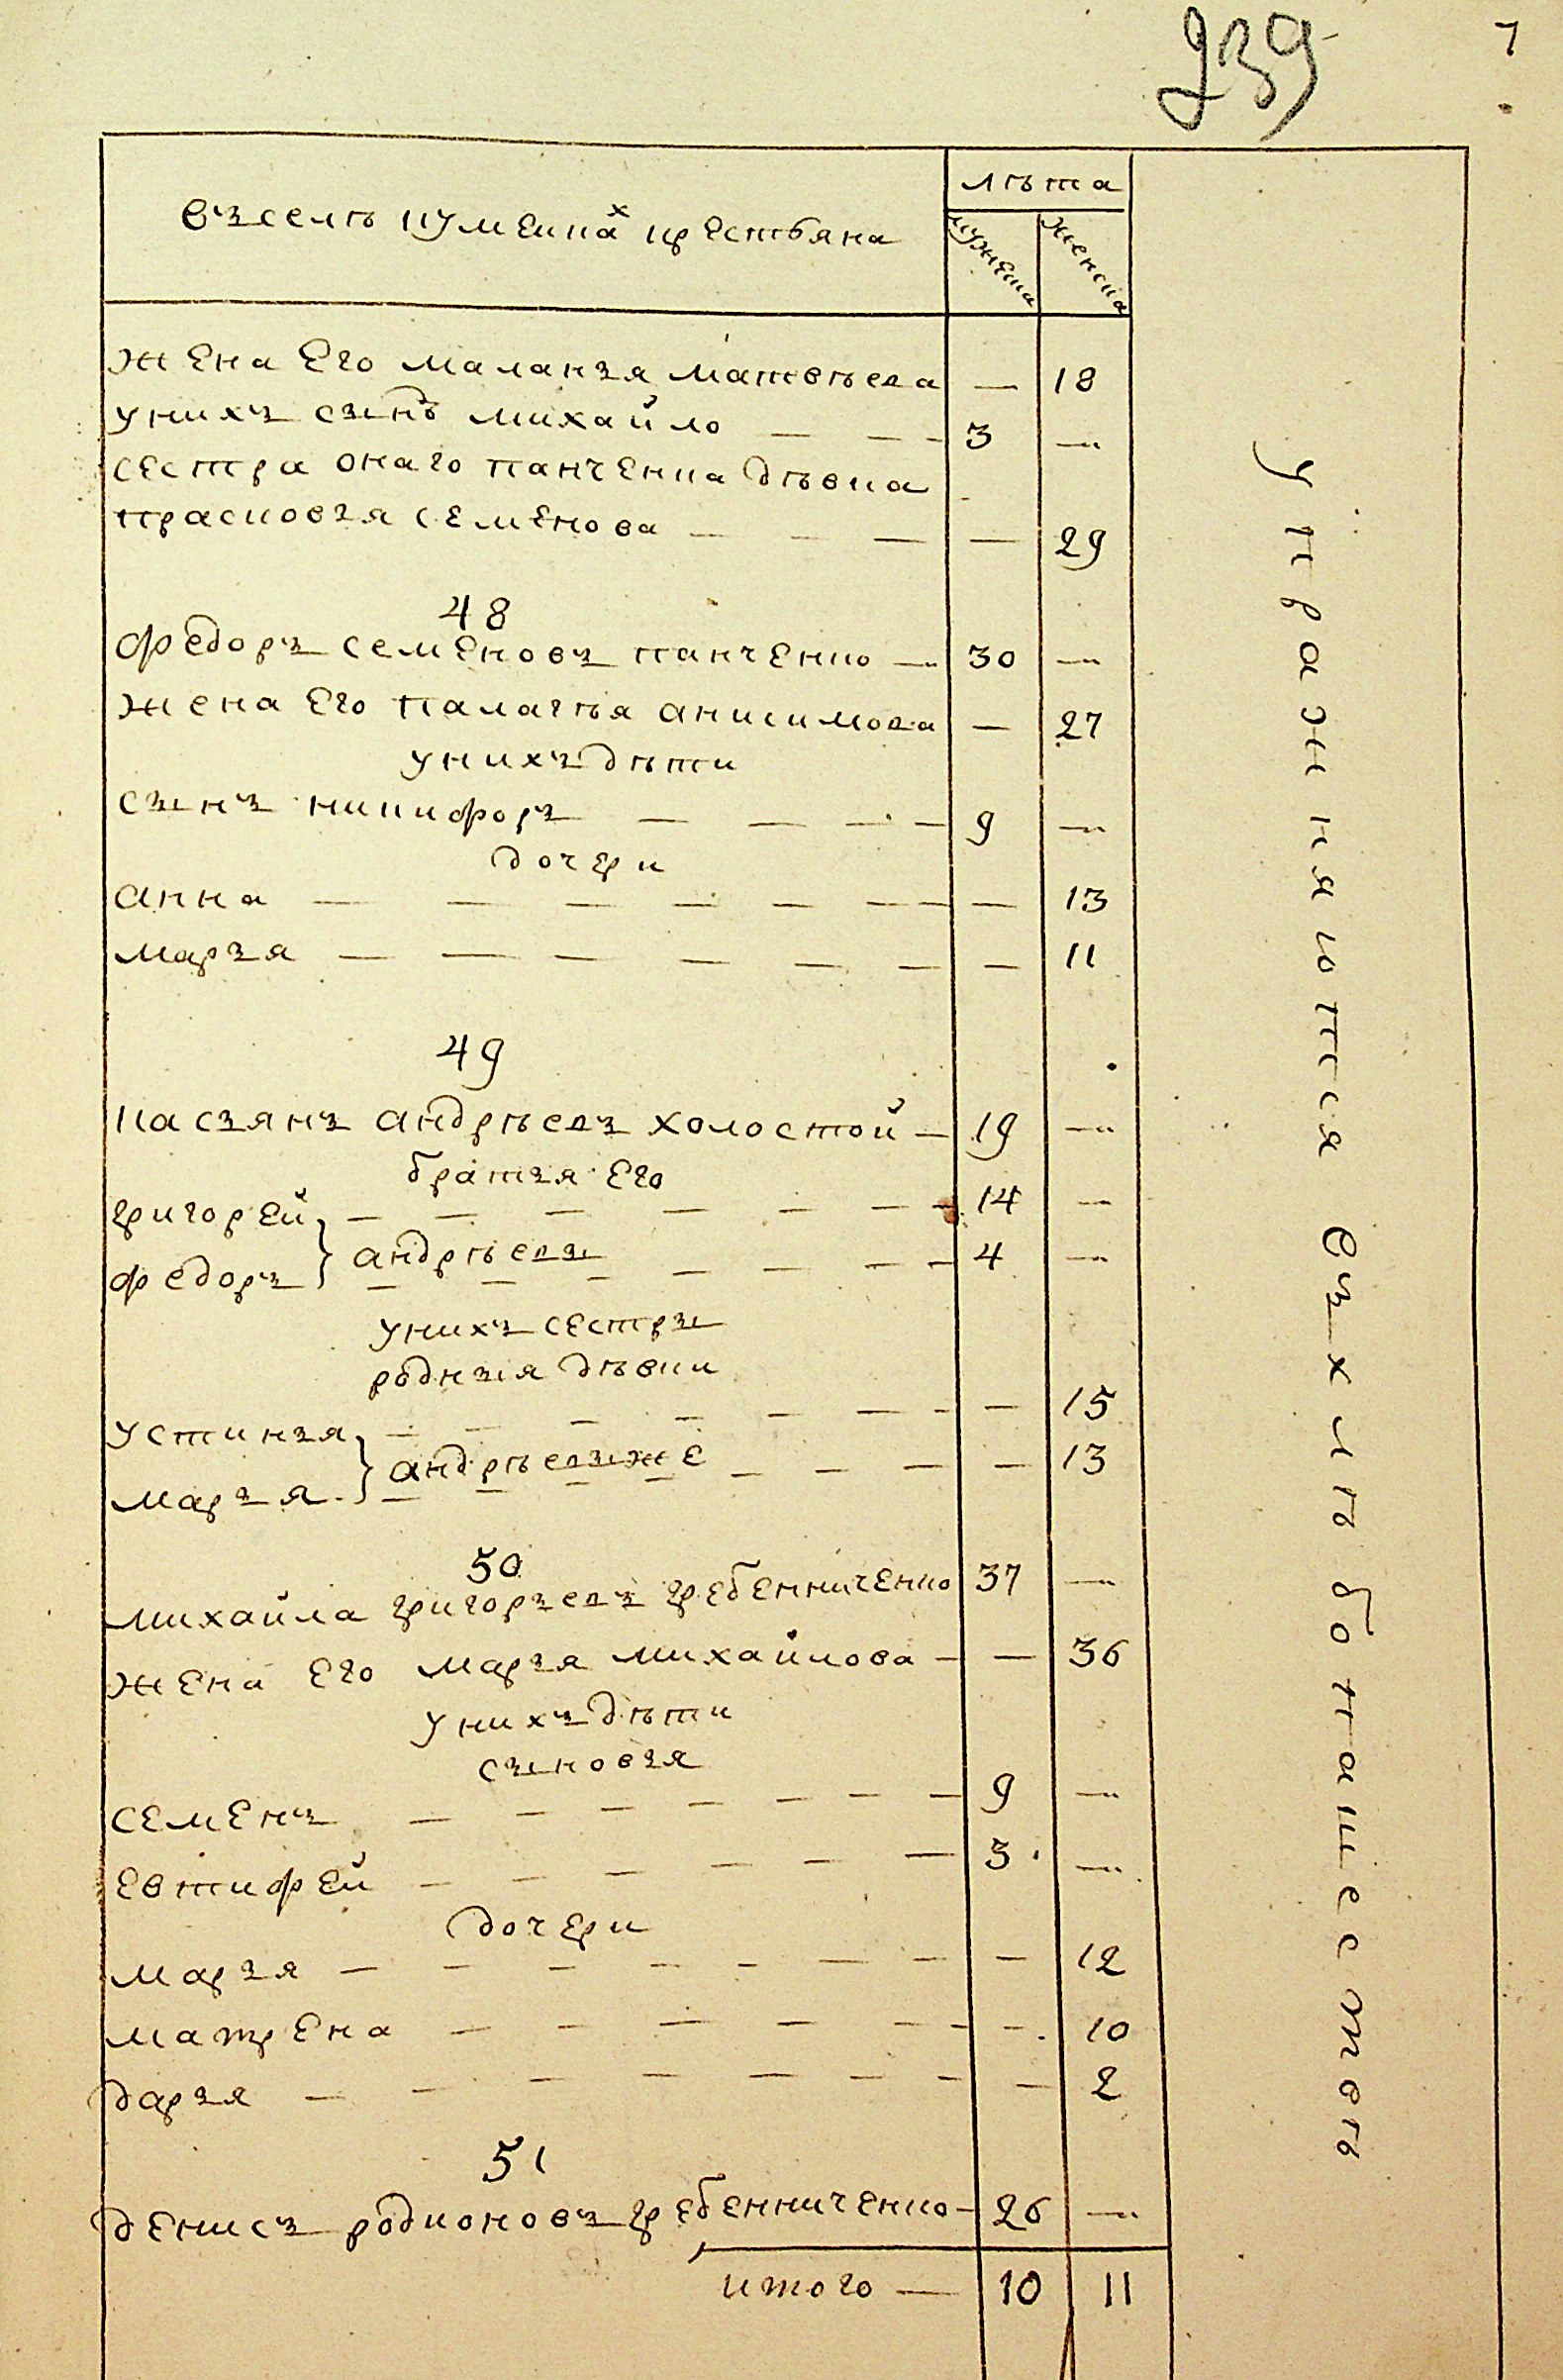 239
7
въселѣ кумейках крестьяна
лѣта
мужеска
женска
жена Его маланъя матвѣева — 18
унихъ сынъ михайло — — — 3 —
сестра онаго панченка дѣвка
прасковъя семенова — — — — 29
48
федоръ семеновъ панченко — 30 —
жена Его палагѣя анисимова — 27
унихъ дѣти
сынъ никифоръ — — — — 9 —
дочери
анна — — — — — — — — 13
маръя — — — — — — — 11
49
касъянъ андрѣевъ холостой — 19 —
братъя Его
григорей — — — — — — — 14 —
федоръ } андрѣевы — — — — — — — 4 —
унихъ сестры
родныя дѣвки
устинъя — — — — — — — — 15
маръя } андрѣевыже — — — — — — — — 13
50
михайла григоръевъ гребенниченко 37 —
жена Его маръя михайлова — — 36
унихъ дѣти
сыновъя
семенъ — — — — — — — 9 —
евтифей — — — — — — 3 —
дочери
маръя — — — — — — — — 12
матрена — — — — — — — 10
даръя — — — — — — — — 2
51
денисъ родионовъ гребенниченко — 26 —
итого — 10 11
упражняются въхлѣбопашествѣ